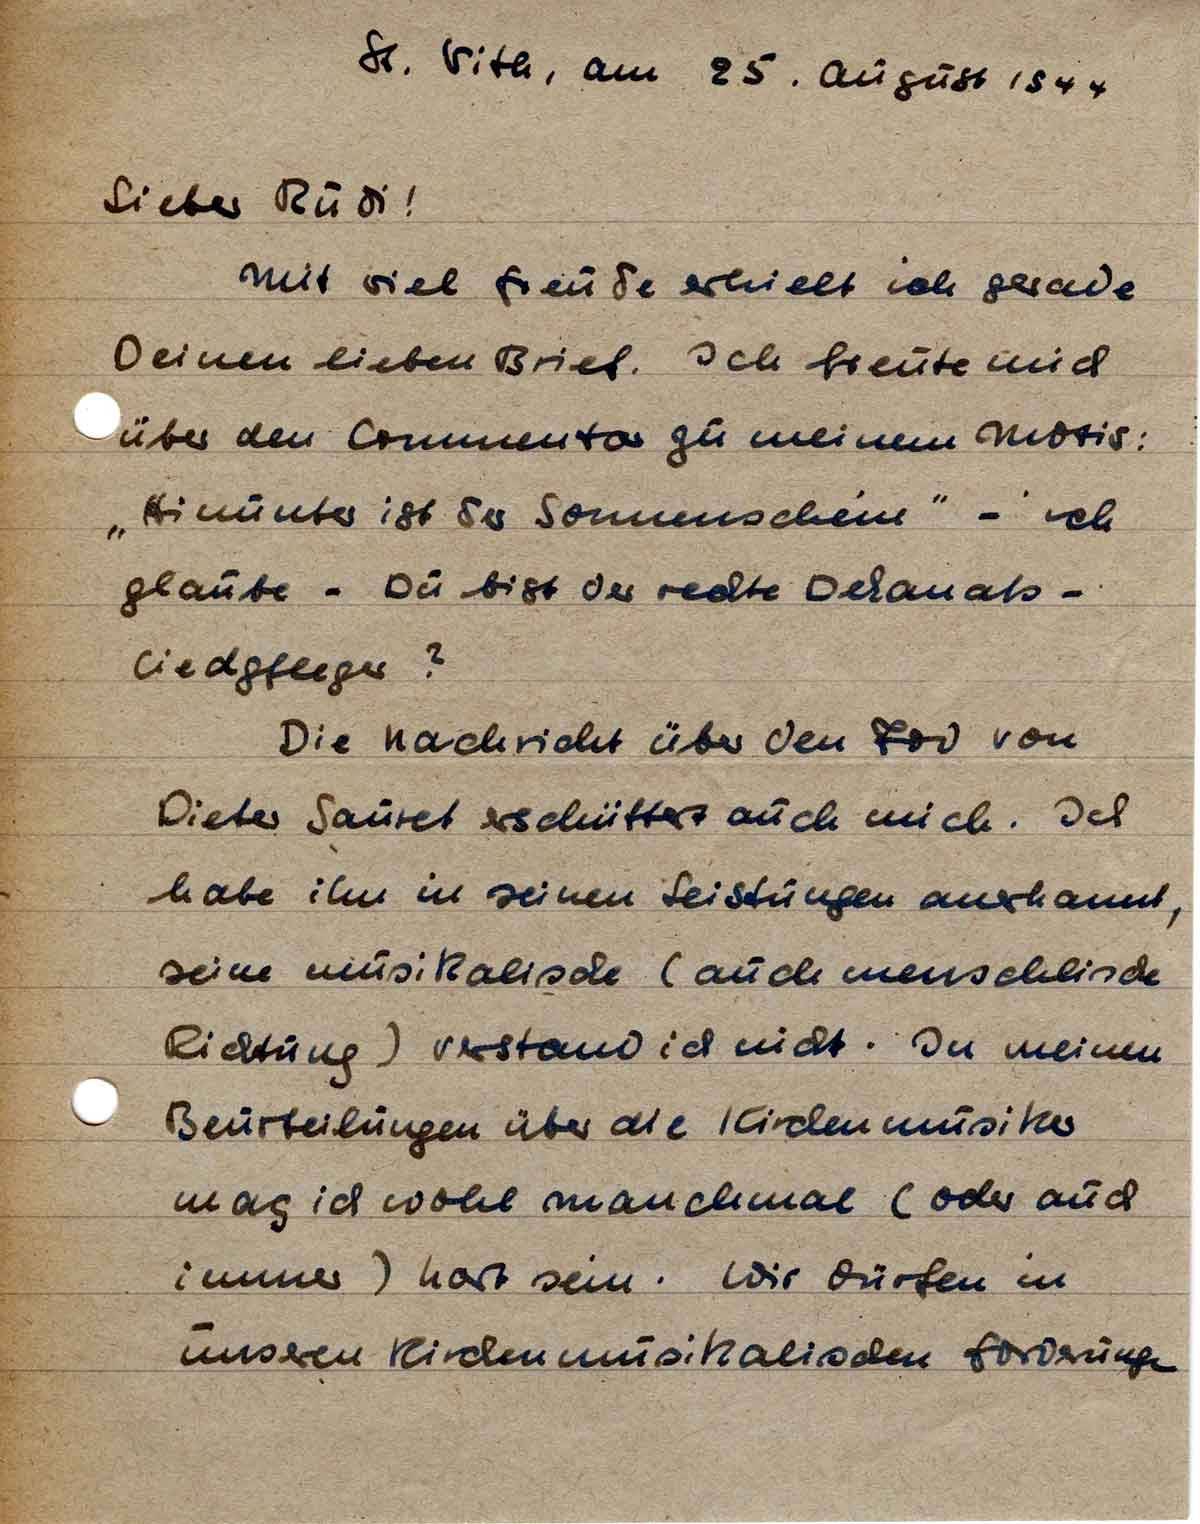 St. Vith, am 25. August 1944
Lieber Rudi!
Mit viel Freude erhielt ich gerade
Deinen lieben Brief. Ich freute mich
über den Commentar zu meinem Motiv:
„Hinunter ist der Sonnenschein" - ich
glaube - Du bist der rechte Dekanats-
liedpfleger?
Die Nachricht über den Tod von
Dieter erschüttert auch mich. Ich
habe ihn in seinen Leistungen anerkannt,
seine musikalische (auch menschliche
Richtung) verstand ich nicht. In meinen
Beurteilungen über die Kirchenmusiker
mag ich wohl manchmal (oder auch
immer) hart sein. Wir dürfen in
unseren Kirchenmusikalischen Forderunge